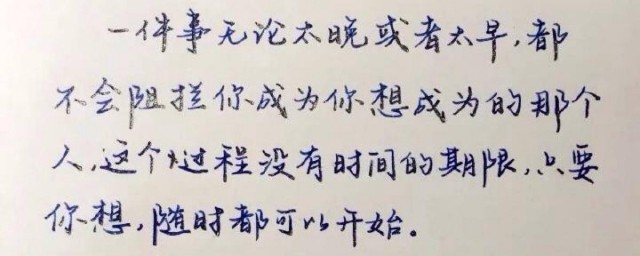 一件事无论太晚或者太早,都
不会阻拦你成为你想成为的那个
人,这个过程没有时间的期限,只要
你想,随时都可以开始。